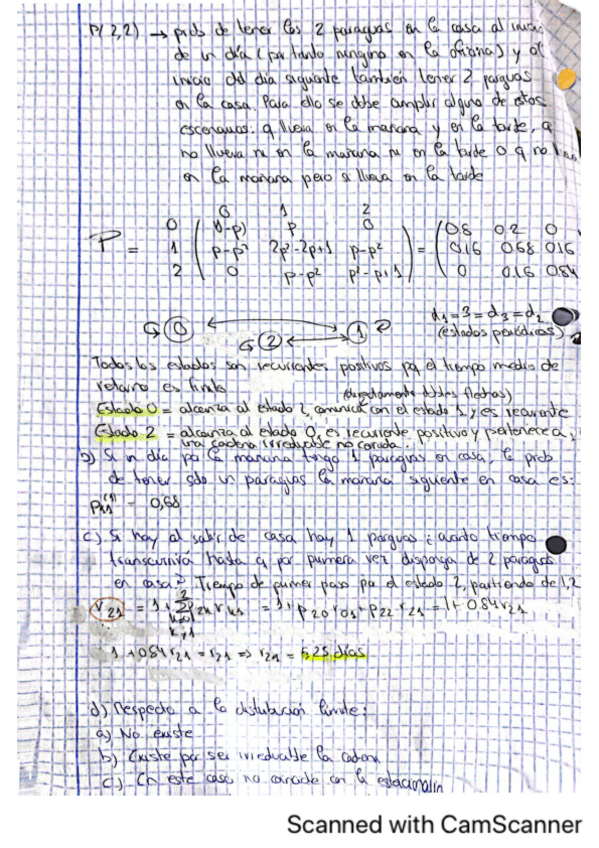 P(2,2) → prob de tener los 2 paraguas en la casa al inicio
de un día (por tanto ninguno en la oficina) y al
inicio del día siguiente también tener 2 paraguas
en la casa. Para ello se debe cumplir alguno de estos
escenarios: q llueva en la mañana y en la tarde, q
no llueva ni en la mañana ni en la tarde o q no
en la mañana pero si llueva en la tarde
0 1 2
0 (1-p) p 0
P = 1 p-p² 2p²-2p+1 p-p² =
2 0 p-p² p²-p+1
0.8 0.2 0
0.16 0.68 0.16
0 0.16 0.84
d1=3=d3=d2
(estados periódicos)
0 2 1
Todos los estados son recurrentes positivos pq el tiempo medio de
retorno es finito
(directamente dobles flechas)
Estado 0 = alcanza al estado 2, comunica con el estado 1 y es recurrente
Estado 2 = alcanza al estado 0, es recurrente positivo y pertenece a
una cadena irreducible no cerrada.
b) Si un día por la mañana tengo 1 paraguas en casa, la prob
de tener sólo un paraguas la mañana siguiente en casa es:
P11(1) = 0,68
c) Si hay al salir de casa hay 1 paraguas ¿cuanto tiempo
transcurrirá hasta q por primera vez disponga de 2 paraguas
en casa? Tiempo de primer paso pa el estado 2, partiendo de 1,2
r21 = 1 + Σ p2k rk1 = 1 + p20 r01 + p22 r21 = 1 + 0.84 r21
1 + 0.84 r21 = r21 ⇒ r21 = 6,25 días
d) Respecto a la distribución límite:
a) No existe
b) Existe por ser irreducible la cadena
c) En este caso no coincide con la
Scanned with CamScanner